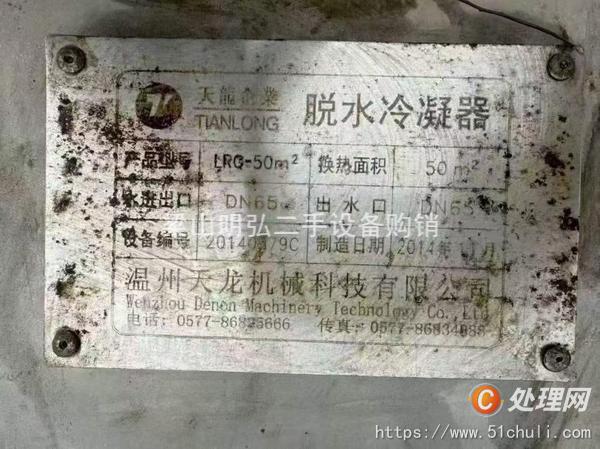 天龍企業
TIANLONG
脱水冷凝器
产品型号 LRG-50m² 换热面积 50m²
水进出口 DN65 出水口 DN65
泰山明弘二手设备购销
设备编号 制造日期 2014年 月
温州天龙机械科技有限公司
Wenzhou Denon Machinery Technology Co.,Ltd
电话: 传真:
C 处理网
https://www.51chuli.com